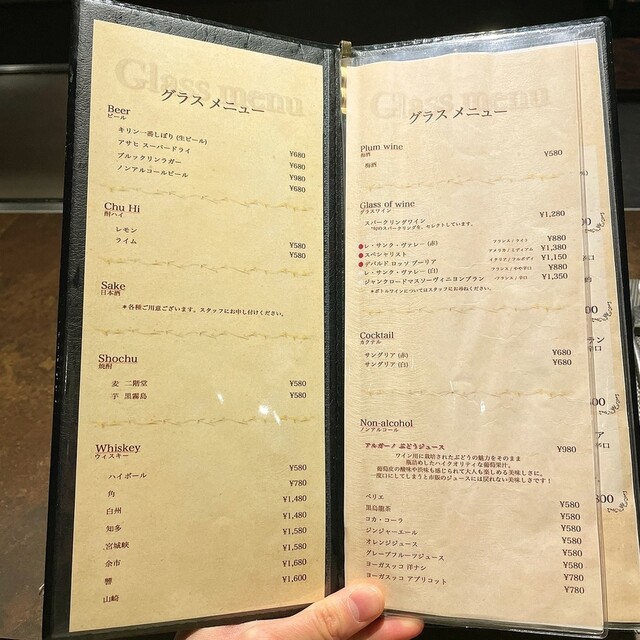 Glass menu
グラス メニュー
Beer
ビール
キリン一番しぼり (生ビール) ¥680
アサヒ スーパードライ ¥680
ブルックリンラガー ¥980
ノンアルコールビール ¥680
Chu Hi
酎ハイ
レモン ¥580
ライム ¥580
Sake
日本酒
＊各種ご用意ございます。スタッフにお申し付けください。
Shochu
焼酎
麦 二階堂 ¥580
芋 黒霧島 ¥580
Whiskey
ウィスキー
ハイボール ¥580
角 ¥780
白州 ¥1,480
知多 ¥1,480
宮城峡 ¥1,580
余市 ¥1,580
響 ¥1,680
山崎 ¥1,600
Glass menu
グラス メニュー
Plum wine
梅酒
梅酒 ¥580
Glass of wine
グラスワイン
スパークリングワイン ¥1,280
＊旬のスパークリングを、セレクトしています。
レ・サンク・ヴァレー (赤) フランス / ライト ¥880
スペシャリスト アメリカ / ミディアム ¥1,380
デパルド ロッソ プーリア イタリア / フルボディ ¥1,150
レ・サンク・ヴァレー (白) フランス / やや辛口 ¥880
ジャンクロードマスソーヴィニヨンブラン フランス / 辛口 ¥1,350
＊ボトルワインについてはスタッフにお尋ねください。
Cocktail
カクテル
サングリア (赤) ¥680
サングリア (白) ¥680
Non-alcohol
ノンアルコール
アルガーノ ぶどうジュース ¥980
ワイン用に栽培されたぶどうの魅力をそのまま
瓶詰めしたハイクオリティな葡萄果汁。
葡萄皮の酸味や渋味も感じられて大人も楽しめる美味しさに。
一度口にしてしまうと市販のジュースには戻れない美味しさです！
ペリエ ¥580
黒烏龍茶 ¥580
コカ・コーラ ¥580
ジンジャーエール ¥580
オレンジジュース ¥580
グレープフルーツジュース ¥580
ヨーガスッコ 洋ナシ ¥780
ヨーガスッコ アプリコット ¥780